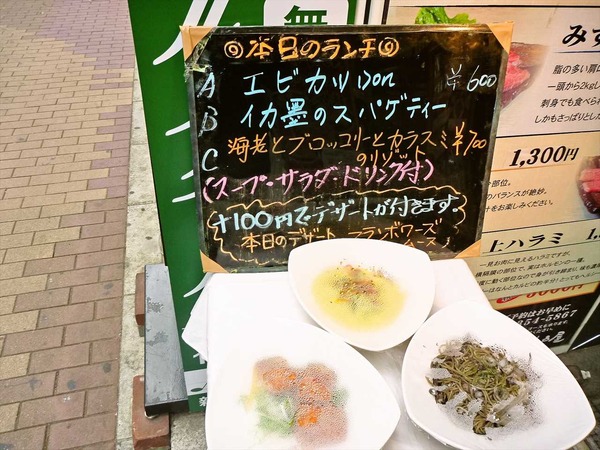 ◎本日のランチ◎
A エビカツDon ¥600
B イカ墨のスパゲティー
C 海老とブロッコリーとカラスミ ¥700
のリゾット
(スープ・サラダ・ドリンク付)
+100円でデザートが付きます。
本日のデザート フランボワーズ
ース
みす
脂の多い肩
一頭から2kgし
刺身でも食べられ
しかもさっぱりとした
1,300円
部位。
のバランスが絶妙。
をお楽しみください。
上ハラミ
一見お肉に見えるハラミですが、
予約はお早めに
254-5867
屋